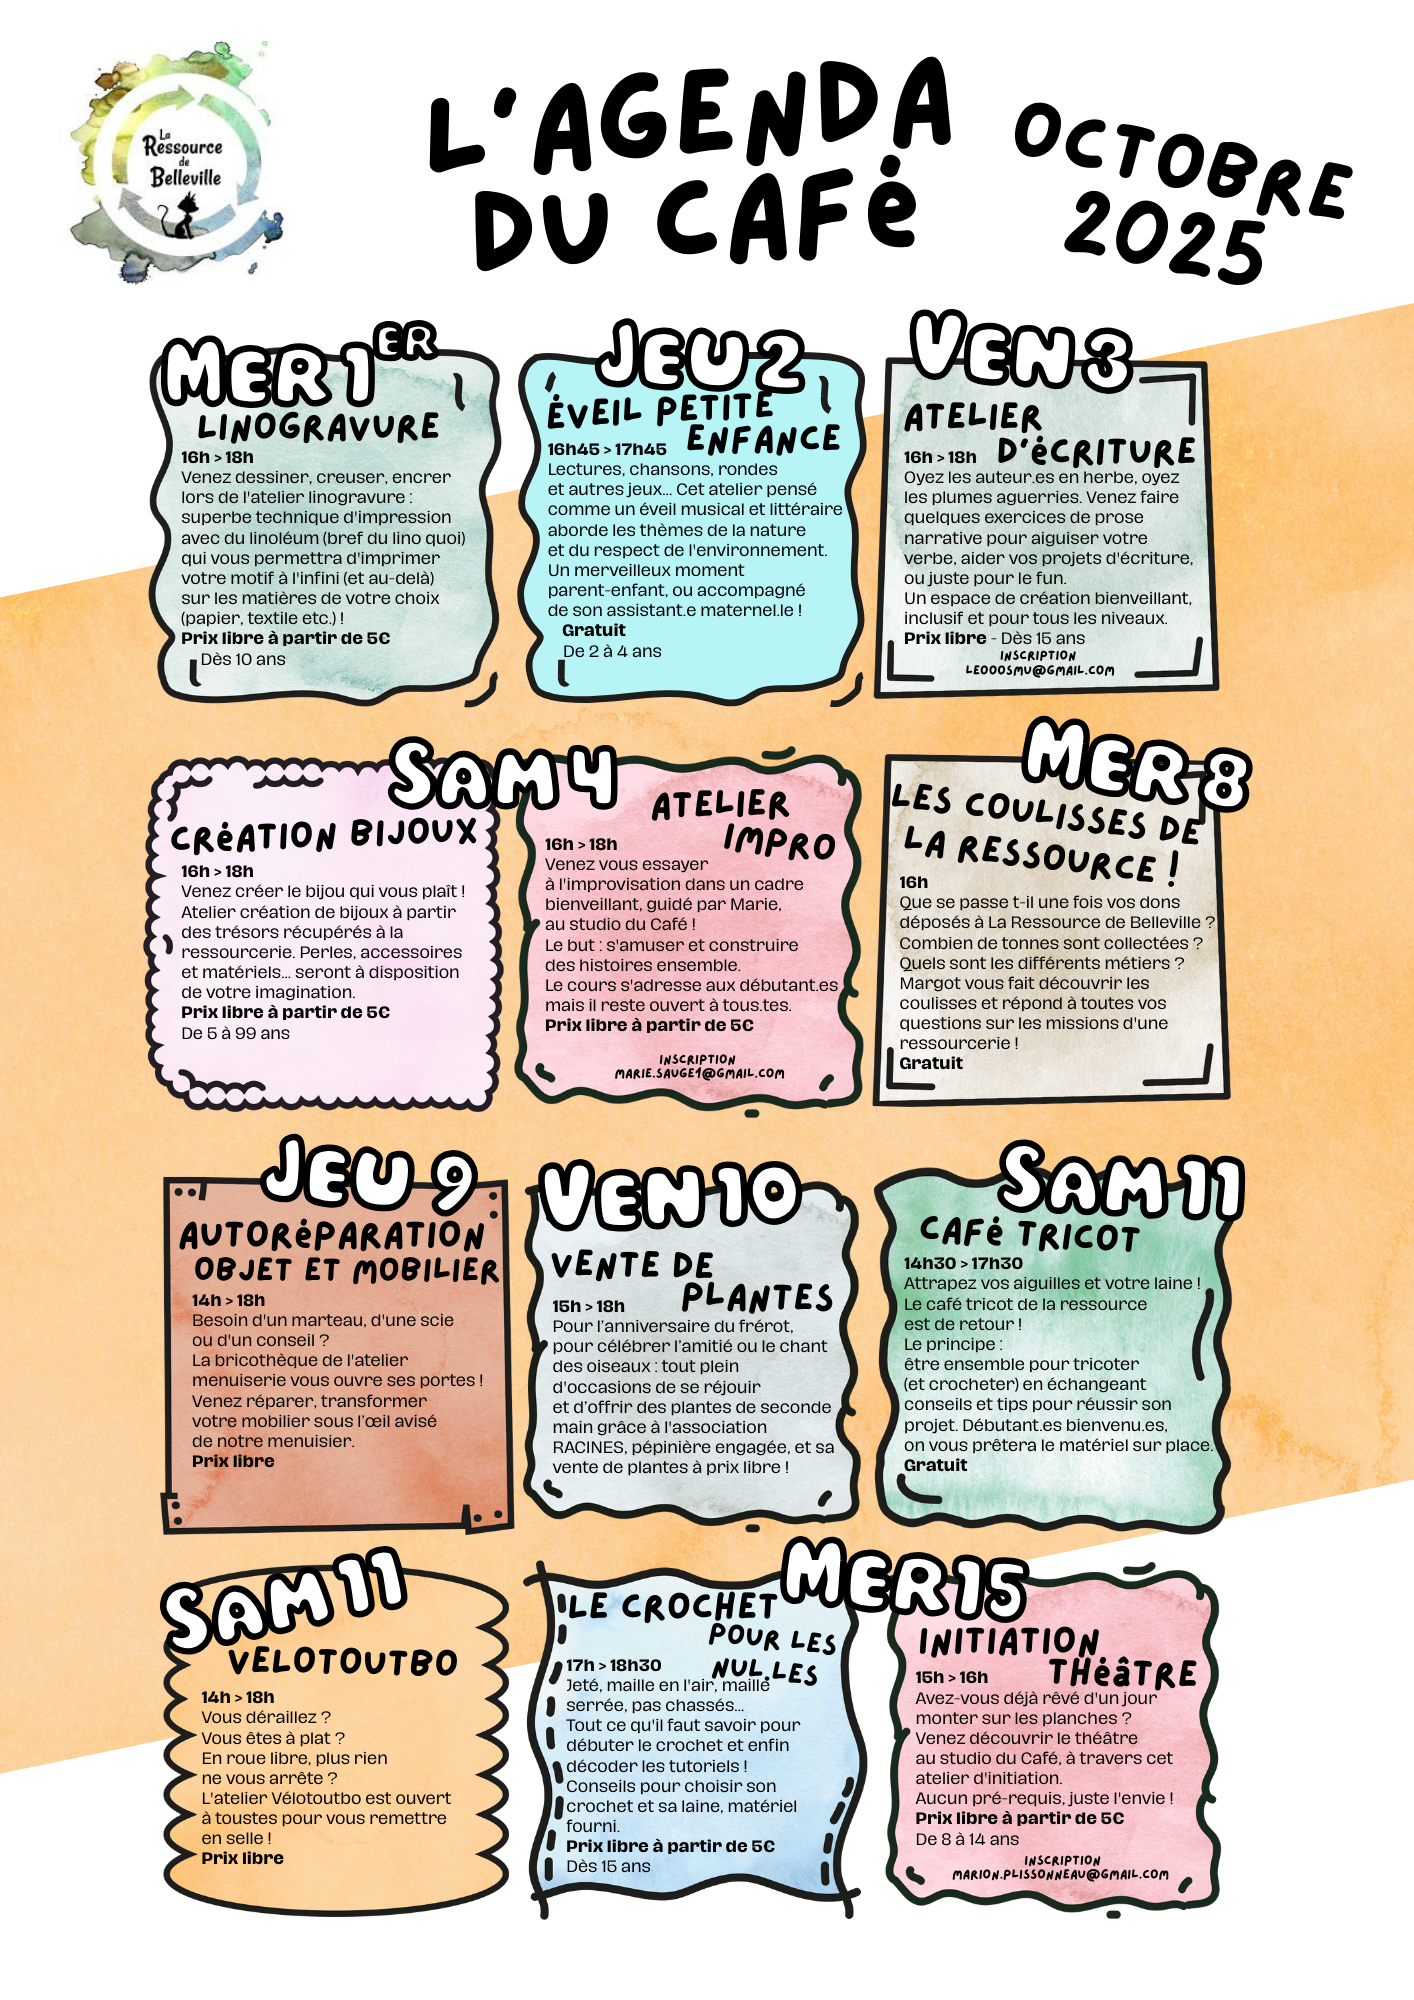 La
Ressource
de
Belleville
L'AGENDA
DU CAFé
OCTOBRE
2025
MER 1ER
LINOGRAVURE
16h > 18h
Venez dessiner, creuser, encrer
lors de l'atelier linogravure :
superbe technique d'impression
avec du linoléum (bref du lino quoi)
qui vous permettra d'imprimer
votre motif à l'infini (et au-delà)
sur les matières de votre choix
(papier, textile etc.) !
Prix libre à partir de 5€
Dès 10 ans
JEU 2
ÉVEIL PETITE
ENFANCE
16h45 > 17h45
Lectures, chansons, rondes
et autres jeux... Cet atelier pensé
comme un éveil musical et littéraire
aborde les thèmes de la nature
et du respect de l'environnement.
Un merveilleux moment
parent-enfant, ou accompagné
de son assistant.e maternel.le !
Gratuit
De 2 à 4 ans
VEN 3
ATELIER
D'éCRITURE
16h > 18h
Oyez les auteur.es en herbe, oyez
les plumes aguerries. Venez faire
quelques exercices de prose
narrative pour aiguiser votre
verbe, aider vos projets d'écriture,
ou juste pour le fun.
Un espace de création bienveillant,
inclusif et pour tous les niveaux.
Prix libre - Dès 15 ans
INSCRIPTION
LEOOOSMU@GMAIL.COM
SAM 4
CRéATION BIJOUX
16h > 18h
Venez créer le bijou qui vous plaît !
Atelier création de bijoux à partir
des trésors récupérés à la
ressourcerie. Perles, accessoires
et matériels... seront à disposition
de votre imagination.
Prix libre à partir de 5€
De 5 à 99 ans
ATELIER
IMPRO
16h > 18h
Venez vous essayer
à l'improvisation dans un cadre
bienveillant, guidé par Marie,
au studio du Café !
Le but : s'amuser et construire
des histoires ensemble.
Le cours s'adresse aux débutant.es
mais il reste ouvert à tous.tes.
Prix libre à partir de 5€
INSCRIPTION
MARIE.SAUGE1@GMAIL.COM
MER 8
LES COULISSES DE
LA RESSOURCE !
16h
Que se passe t-il une fois vos dons
déposés à La Ressource de Belleville ?
Combien de tonnes sont collectées ?
Quels sont les différents métiers ?
Margot vous fait découvrir les
coulisses et répond à toutes vos
questions sur les missions d'une
ressourcerie !
Gratuit
JEU 9
AUTORéPARATION
OBJET ET MOBILIER
14h > 18h
Besoin d'un marteau, d'une scie
ou d'un conseil ?
La bricothèque de l'atelier
menuiserie vous ouvre ses portes !
Venez réparer, transformer
votre mobilier sous l'œil avisé
de notre menuisier.
Prix libre
VEN 10
VENTE DE
PLANTES
15h > 18h
Pour l'anniversaire du frérot,
pour célébrer l'amitié ou le chant
des oiseaux : tout plein
d'occasions de se réjouir
et d'offrir des plantes de seconde
main grâce à l'association
RACINES, pépinière engagée, et sa
vente de plantes à prix libre !
SAM 11
CAFé TRICOT
14h30 > 17h30
Attrapez vos aiguilles et votre laine !
Le café tricot de la ressource
est de retour !
Le principe :
être ensemble pour tricoter
(et crocheter) en échangeant
conseils et tips pour réussir son
projet. Débutant.es bienvenu.es,
on vous prêtera le matériel sur place.
Gratuit
SAM 11
VELOTOUTBO
14h > 18h
Vous déraillez ?
Vous êtes à plat ?
En roue libre, plus rien
ne vous arrête ?
L'atelier Vélotoutbo est ouvert
à toustes pour vous remettre
en selle !
Prix libre
MER 15
LE CROCHET
POUR LES
NUL.LES
17h > 18h30
Jeté, maille en l'air, maille
serrée, pas chassés...
Tout ce qu'il faut savoir pour
débuter le crochet et enfin
décoder les tutoriels !
Conseils pour choisir son
crochet et sa laine, matériel
fourni.
Prix libre à partir de 5€
Dès 15 ans
INITIATION
THéâTRE
15h > 16h
Avez-vous déjà rêvé d'un jour
monter sur les planches ?
Venez découvrir le théâtre
au studio du Café, à travers cet
atelier d'initiation.
Aucun pré-requis, juste l'envie !
Prix libre à partir de 5€
De 8 à 14 ans
INSCRIPTION
MARION.PLISSONNEAU@GMAIL.COM